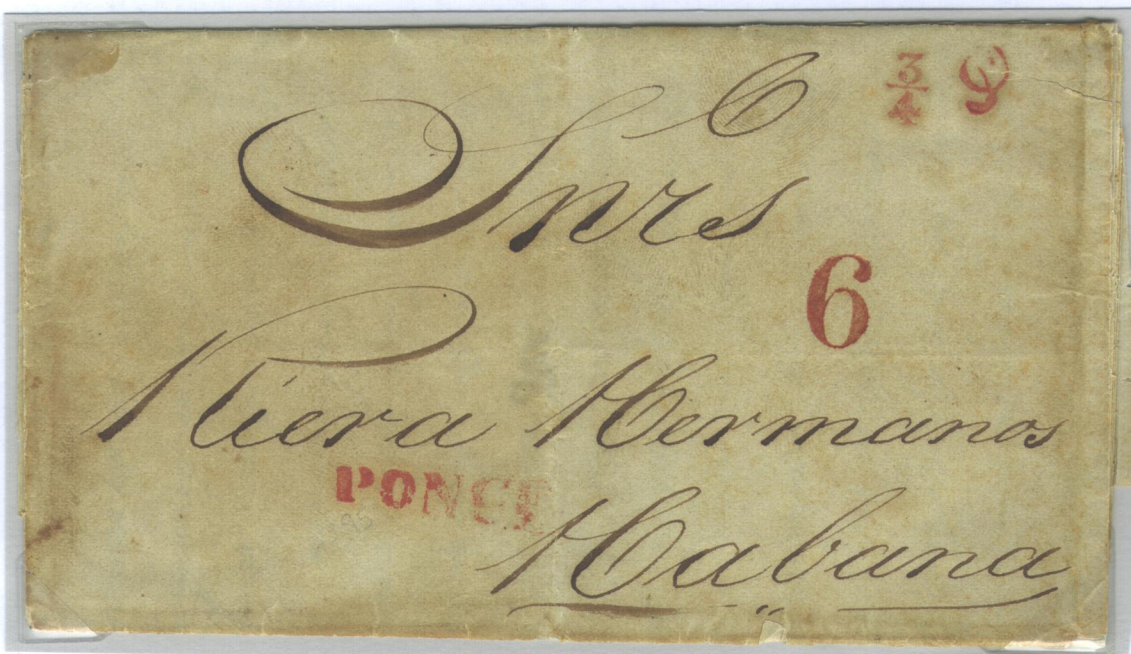 ¾ 9
Snrs
6
Riera Hermanos
PONCE
Habana